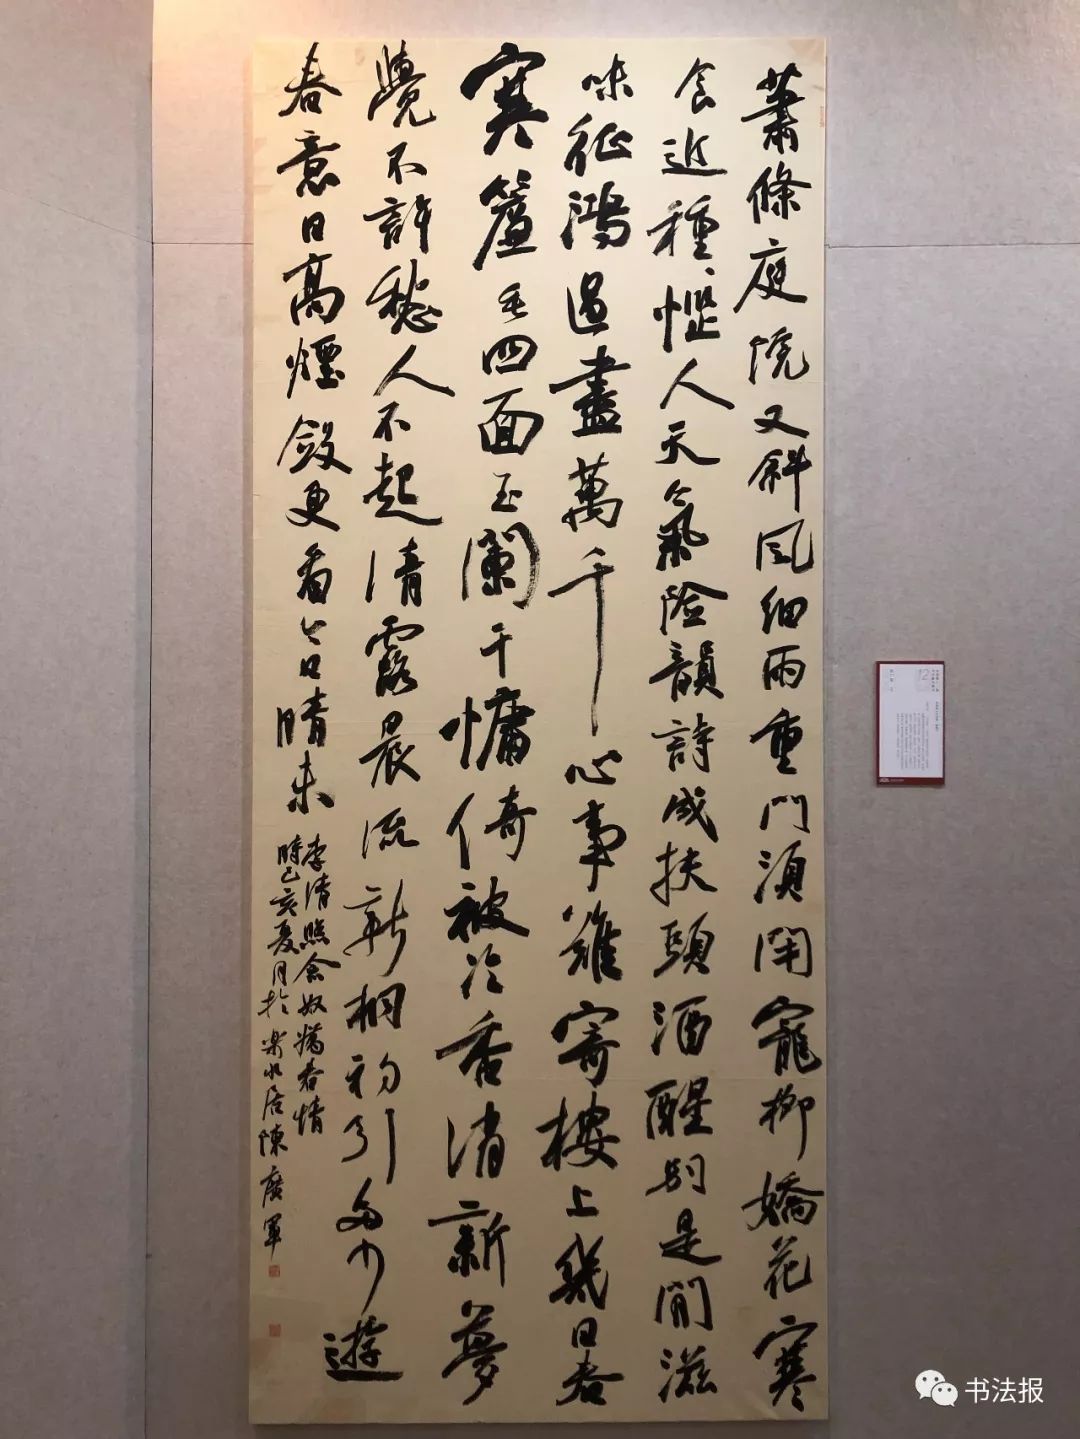 蕭條庭院又斜風細雨重門須閉寵柳嬌花寒
食近種種惱人天氣險韻詩成扶頭酒醒別是閒滋
味征鴻過盡萬千心事難寄樓上幾日春
寒簾垂四面玉闌干慵倚被冷香消新夢
覺不許愁人不起清露晨流新桐初引多少遊
春意日高煙斂更看今日晴未
李清照念奴嬌春情
時己亥夏月於樂水居陳廣軍
12
书法报